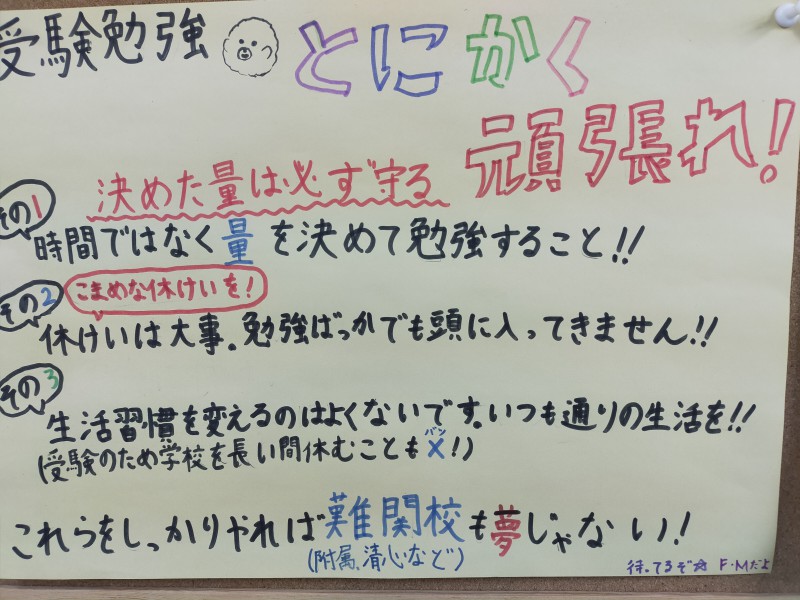 受験勉強 とにかく
頑張れ!
その1 決めた量は必ず守る
時間ではなく量を決めて勉強すること!!
その2 こまめな休けいを!
休けいは大事。勉強ばっかでも頭に入ってきません!!
その3
生活習慣を変えるのはよくないです。いつも通りの生活を!!
(受験のため学校を長い間休むことも×バツ!)
これらをしっかりやれば難関校も夢じゃない!
(附属、清心など)
待ってるぞ☆ F・Mだよ